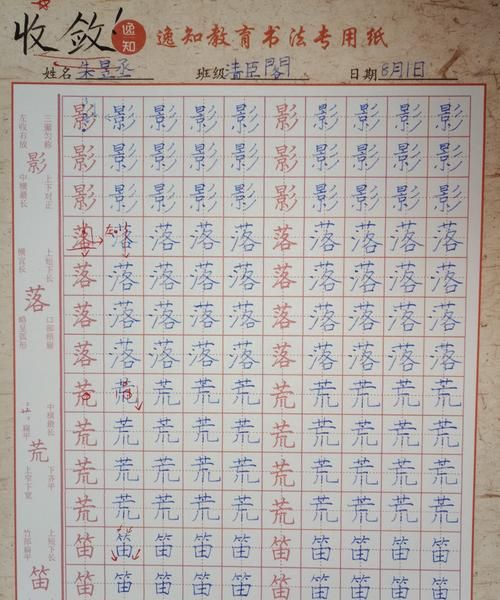 收敛!
逸知
逸知教育书法专用纸
姓名 朱昱丞 班级 清臣閣 日期 8月1日
三撇匀称
左收右放
影
上下对正
中横最长
上短下长
横宜长
落
口部稍扁
略呈弧形
中横最长
"艹"扁平
荒
下齐平
上窄下宽
上短下长
竹部扁平
笛
影影影影影影影影影影
影影影影影影影影影影
影影影影影影影影影影
落落落落落落落落落落
落落落落落落落落落落
落落落落落落落落落落
落落落落落落落落落落
荒荒荒荒荒荒荒荒荒荒
荒荒荒荒荒荒荒荒荒荒
荒荒荒荒荒荒荒荒荒荒
荒荒荒荒荒荒荒荒荒荒
笛笛笛笛笛笛笛笛笛笛
笛笛笛笛笛笛笛笛笛笛